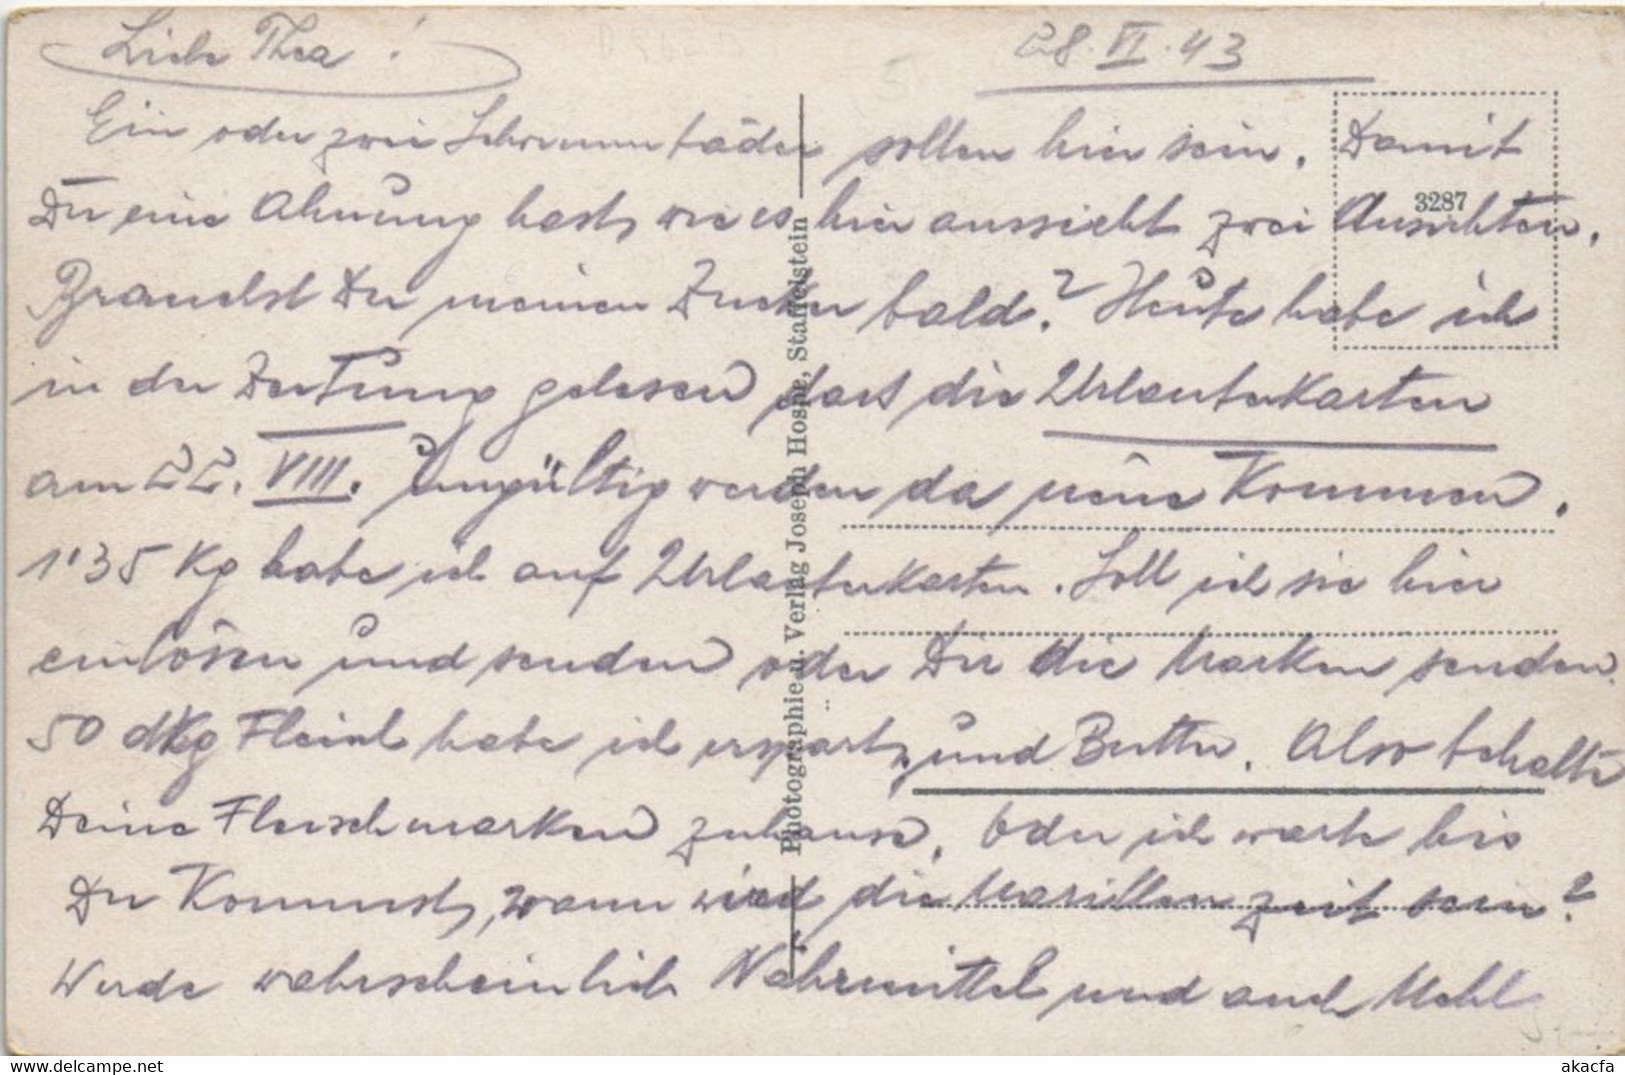 Liebe Thea! 28.VI.43
Ein oder zwei Schwimmbäder sollen hier sein. Damit
Du eine Ahnung hast, wie es hier aussieht zwei Ansichten.
Brauchst Du meinen Zucker bald? Heute habe ich
in der Zeitung gelesen dass die Urlauberkarten
am 22. VIII. Ungültig werden da neue Kommen.
1'35 Kg habe ich auf Urlauberkarten. Soll ich sie hier
einlösen und senden oder Dir die Marken senden.
50 dKg Fleisch habe ich erspart, und Butter. Also behalte
Deine Fleischmarken zuhause. Oder ich warte bis
Du Kommst, wann wird die Marillenzeit sein?
Werde wahrscheinlich Nährmittel und auch Mehl
3287
Photographie u. Verlag Joseph Hospe, Staffelstein
akacfa